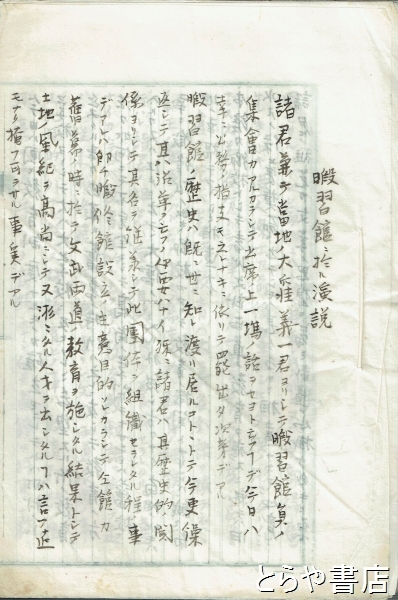 暇習館ニ於ル演説
諸君兼テ當地ノ大荘義一君ヨリシテ暇習館員ノ
集會カアルカラシテ出席上一塲ノ話ヲセヨトモフデ今日ハ
幸ニ公務ノ指支モナキニ依リテ罷出タ次第デアル
暇習館ノ歴史ハ既ニ世ニ知レ渡リ居ルコトシテ今更繰
返シテ其ハ沿革ヲモフノ必要ハナイ殊ニ諸君ハ其歴史的関
係ヨリシテ其名ヲ襲シテ此團体ヲ組織セラレタル程ノ事
デアレハ即チ暇修館設立ノ主意目的ソレカラシテ仝館カ
舊幕時ニ於テ文武両道ノ教育ヲ施シタル結果トシテ
土地ノ風紀ヲ高尚ニシテ又済々タル人才ヲ出シタルコハ言フ迠
モナク掩フ可ラサル事実デアル
とらや書店